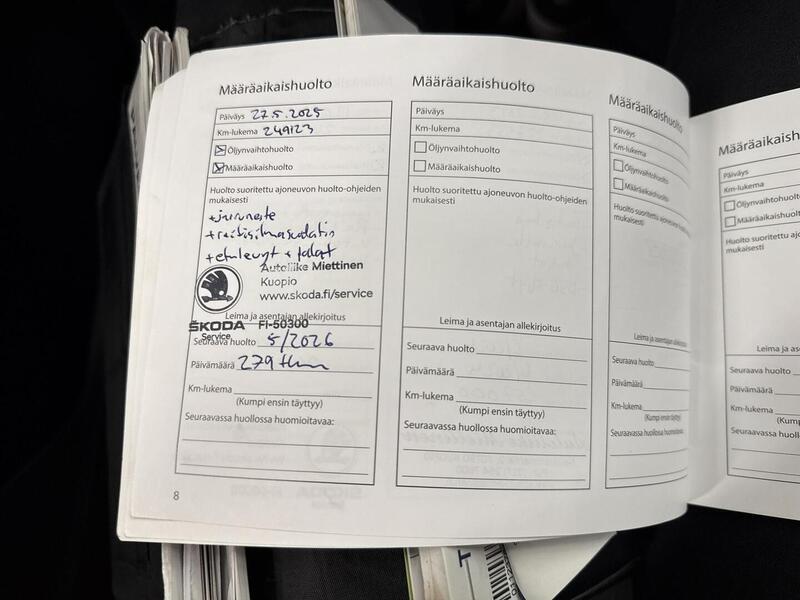 Määräaikaishuolto
Päiväys 27.5.2025
Km-lukema 249123
Öljynvaihtohuolto
Määräaikaishuolto
Huolto suoritettu ajoneuvon huolto-ohjeiden
mukaisesti
+jarruneste
+raitisilmasuodatin
+etulevyt + palat
Autoliike Miettinen
Kuopio
www.skoda.fi/service
Leima ja asentajan allekirjoitus
ŠKODA FI-50300
Service
Seuraava huolto 5/2026
Päivämäärä 279 tkm
Km-lukema
(Kumpi ensin täyttyy)
Seuraavassa huollossa huomioitavaa:
8
Määräaikaishuolto
Päiväys
Km-lukema
Öljynvaihtohuolto
Määräaikaishuolto
Huolto suoritettu ajoneuvon huolto-ohjeiden
mukaisesti
Leima ja asentajan allekirjoitus
Seuraava huolto
Päivämäärä
Km-lukema
(Kumpi ensin täyttyy)
Seuraavassa huollossa huomioitavaa:
Määräaikaishuolto
Päiväys
Km-lukema
Öljynvaihtohuolto
Määräaikaishuolto
Huolto suoritettu ajoneuvon
mukaisesti
Leima ja asentajan
Seuraava huolto
Päivämäärä
Km-lukema
(Kumpi ensin täyttyy)
Seuraavassa huollossa huomioitavaa:
Määräaikaishuolto
Päiväys
Km-lukema
Öljynvaihtohuolto
Määräaikaishuolto
Huolto suoritettu
mukaisesti
Leima ja
Seuraava huolto
Päivämäärä
Km-lukema
(Kumpi
Seuraavassa huollossa